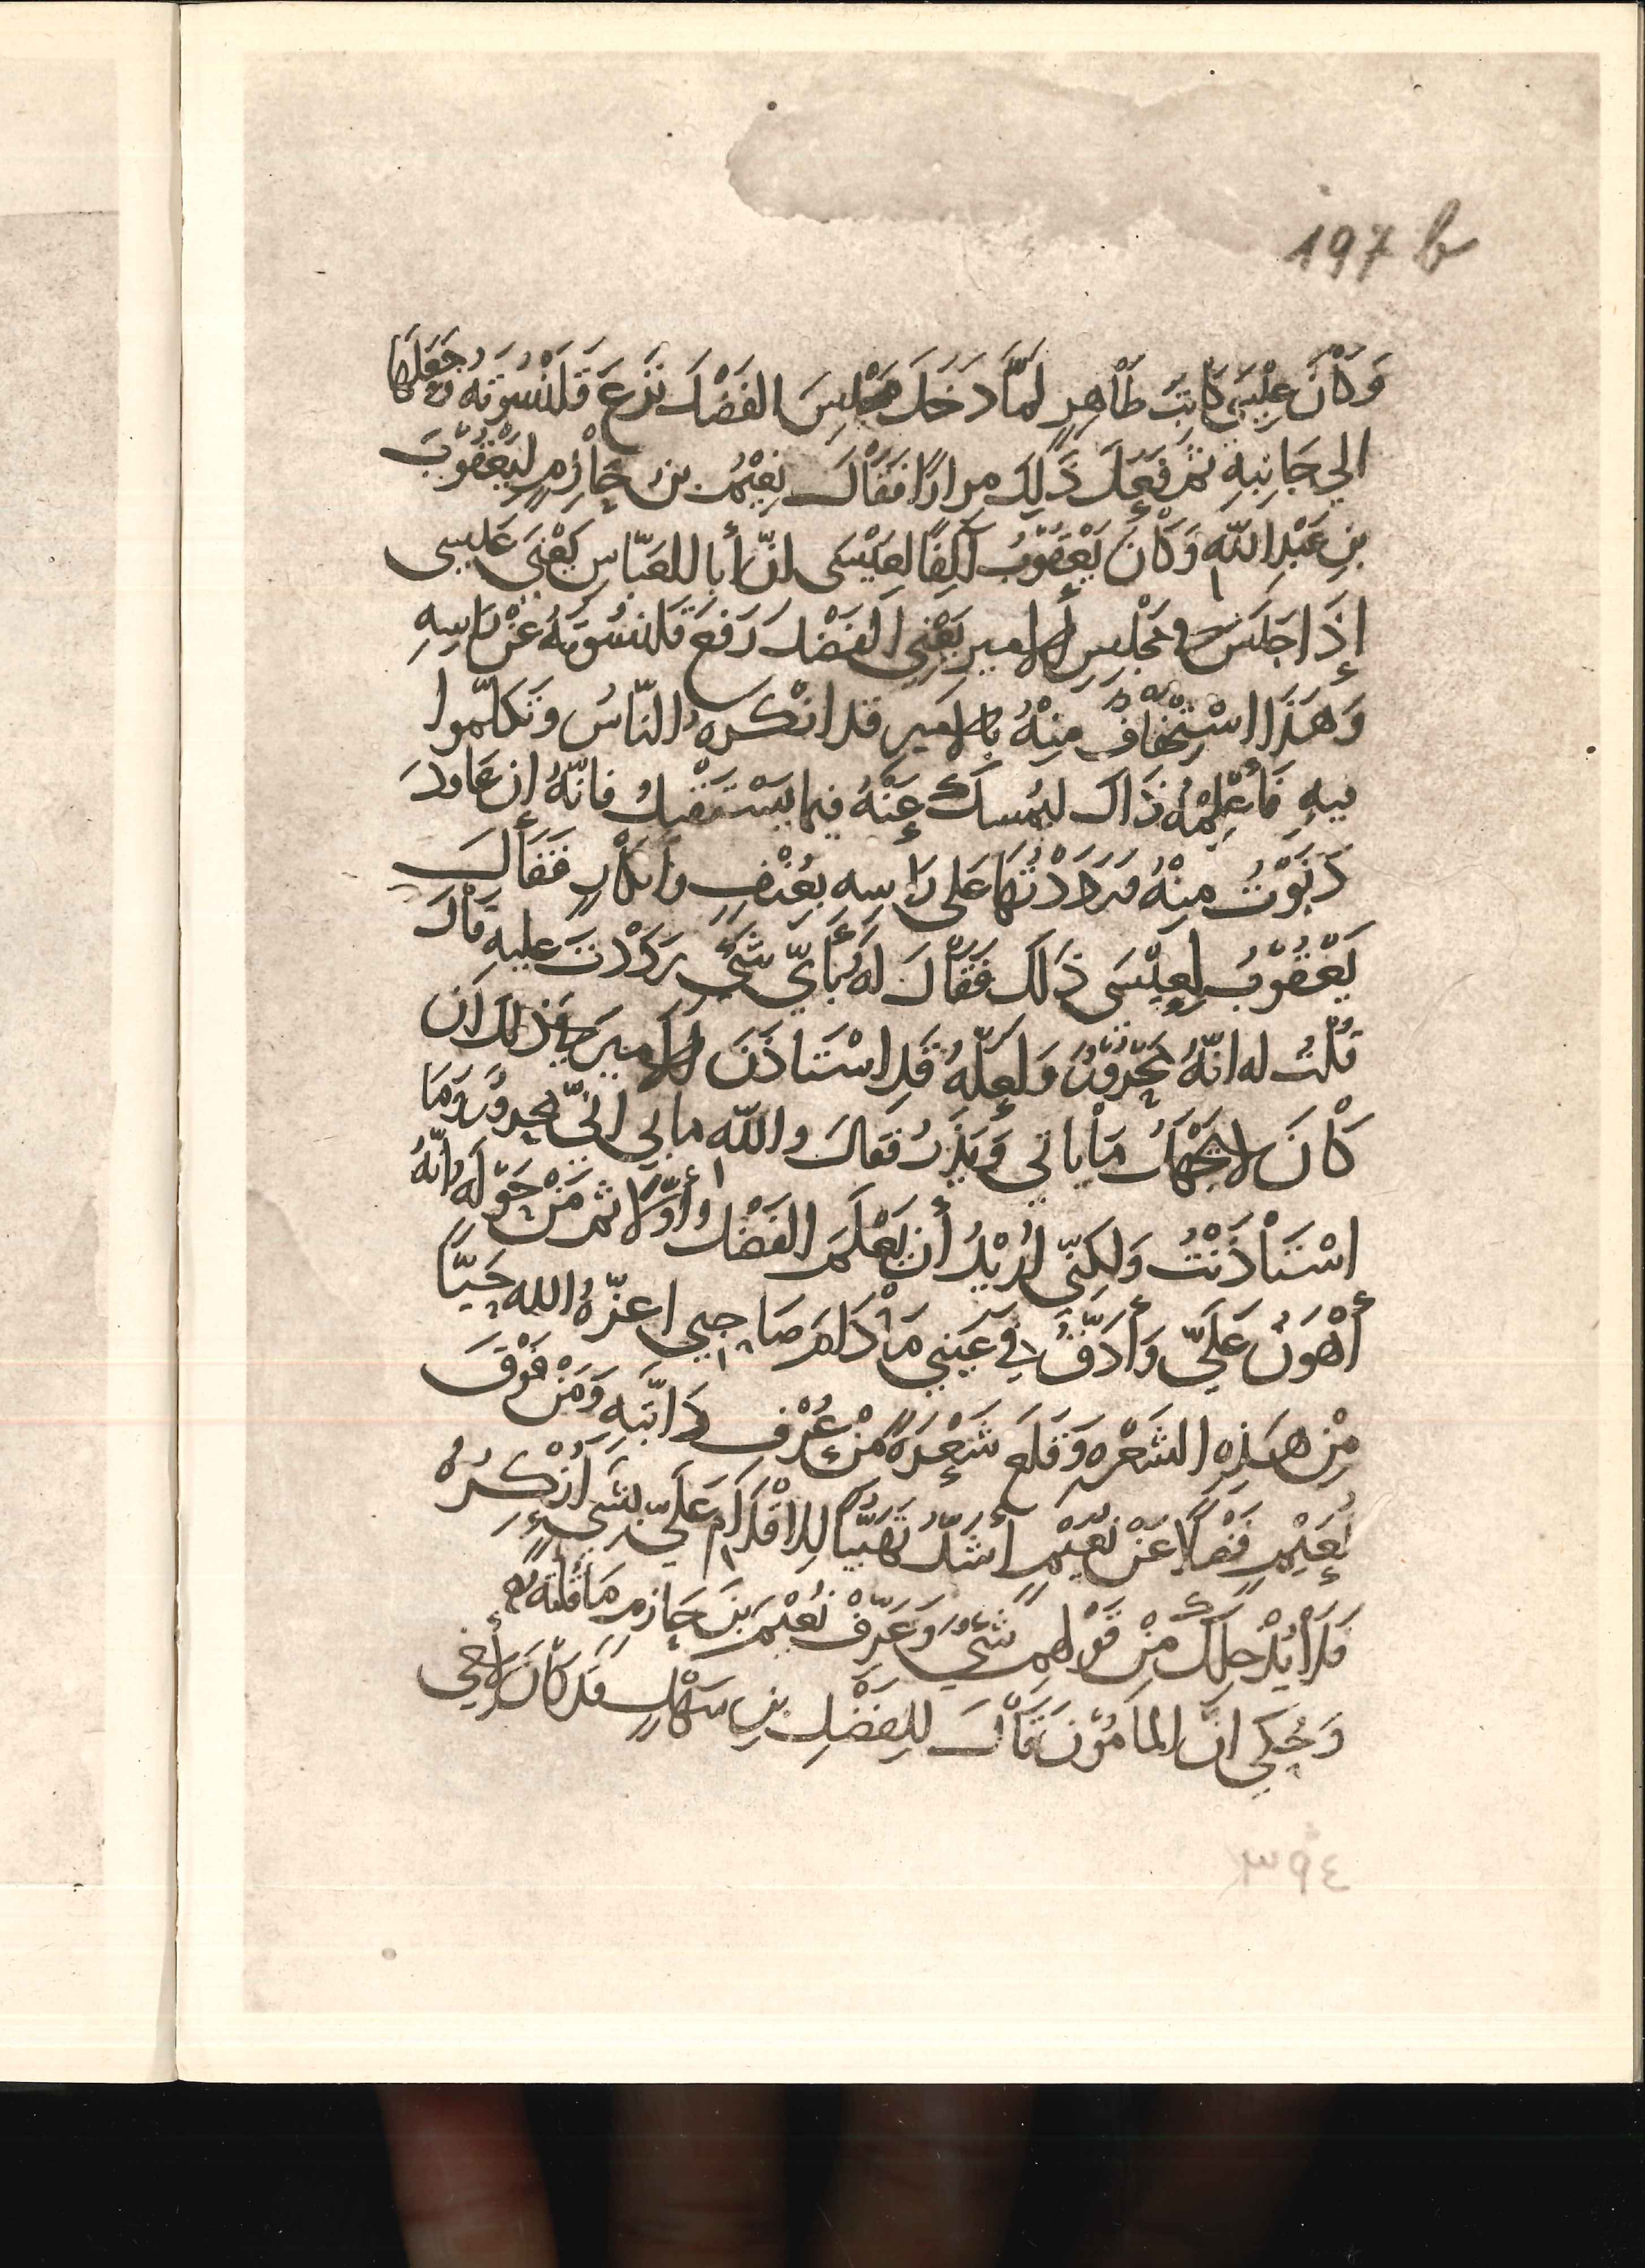 197 b
وَكَانَ عِيْسَى كَاتِبُ طَاهِرٍ لَمَّا دَخَلَ مَجْلِسَ الفَضْلِ نَزَعَ قَلَنْسُوَتَهُ وَجَعَلَهَا
الي جَانِبِهِ ثم فَعَلَ ذَلِكَ مِرَارًا فَقَالَ نُعَيْمُ بن حَازِمٍ لِيَعْقُوْبَ
بنِ عَبْدِ اللّهِ وَكَانَ يَعْقُوْبُ آلِفًا لِعِيْسَى انّ أبا العَبّاسِ يَعْنِي عِيسى
إِذَا جَلَسَ في مَجْلِسِ الأمير يَعْنِي الفَضْلَ رَفَعَ قَلَنْسُوَتَهُ عَنْ رَاسِهِ
وَهَذَا اسْتِخْفَافٌ مِنْهُ بِالامَيرِ قد انْكَرهُ النّاسُ وَتَكَلّموا
فيهِ فَأعْلِمْهُ ذَاكَ ليُمسكَ عَنْهُ فيما يَسْتَقْبِلُ فانّهُ إن عَاودَ
دَنَوْتُ مِنْهُ فَرَدَدْتُهَا عَلى رَاسِهِ بِعُنْفٍ وَانْكَارٍ فَقَالَ
يَعْقُوْبُ لِعِيْسَى ذَلكَ فَقَالَ لَهُ بِأَيِّ شَيْءٍ رَدَدْتَ عليهِ قَالَ
قُلْتُ له انّهُ مَحْرُوْرٌ وَلَعَلّهُ قَدِ اسْتَاذَنَ الامِيرَ في ذلكَ ان
كَانَ لا يَجْهَلُ مَا يَاتي وَيَذَرُ فَقَالَ واللّهِ ما بي انّي مَحرورٌ وَمَا
اسْتَأذَنْتُ وَلكِنّي اُرِيْدُ أن يَعْلَمَ الفَضْلُ أوّلًا ثم مَنْ حَوْلَهُ انّهُ
أهْوَنُ عَلَيّ وَأدَقُّ في عَيْنِي مَا دَامَ صَاحِبِي اعزّهُ الله حَيّاً
مِنْ هَذِهِ الشَعْره وَقَلعَ شَعْرَةً مِنْ عُرْفِ دَابّتِهِ وَمَنْ فَوْقَ
نُعَيْمٍ فَضْلاً عَنْ نُعَيْمٍ أشَدُّ تَهَيّباً لِلاِقْدَامِ عَلَيّ بشَيءٍ اُنْكِرُهُ
فَلَا يَدْخُلكَ مِنْ قَوْلِهِمِ شَيْءٌ وَعَرّفْ نُعَيْمَ بنَ حَازِمٍ مَا قُلْتَهُ
وَحُكِيَ انّ المامُوْنَ قَالَ لِلفَضْلِ بنِ سَهْلٍ قَد كَانَ لأخي
٤٩٣